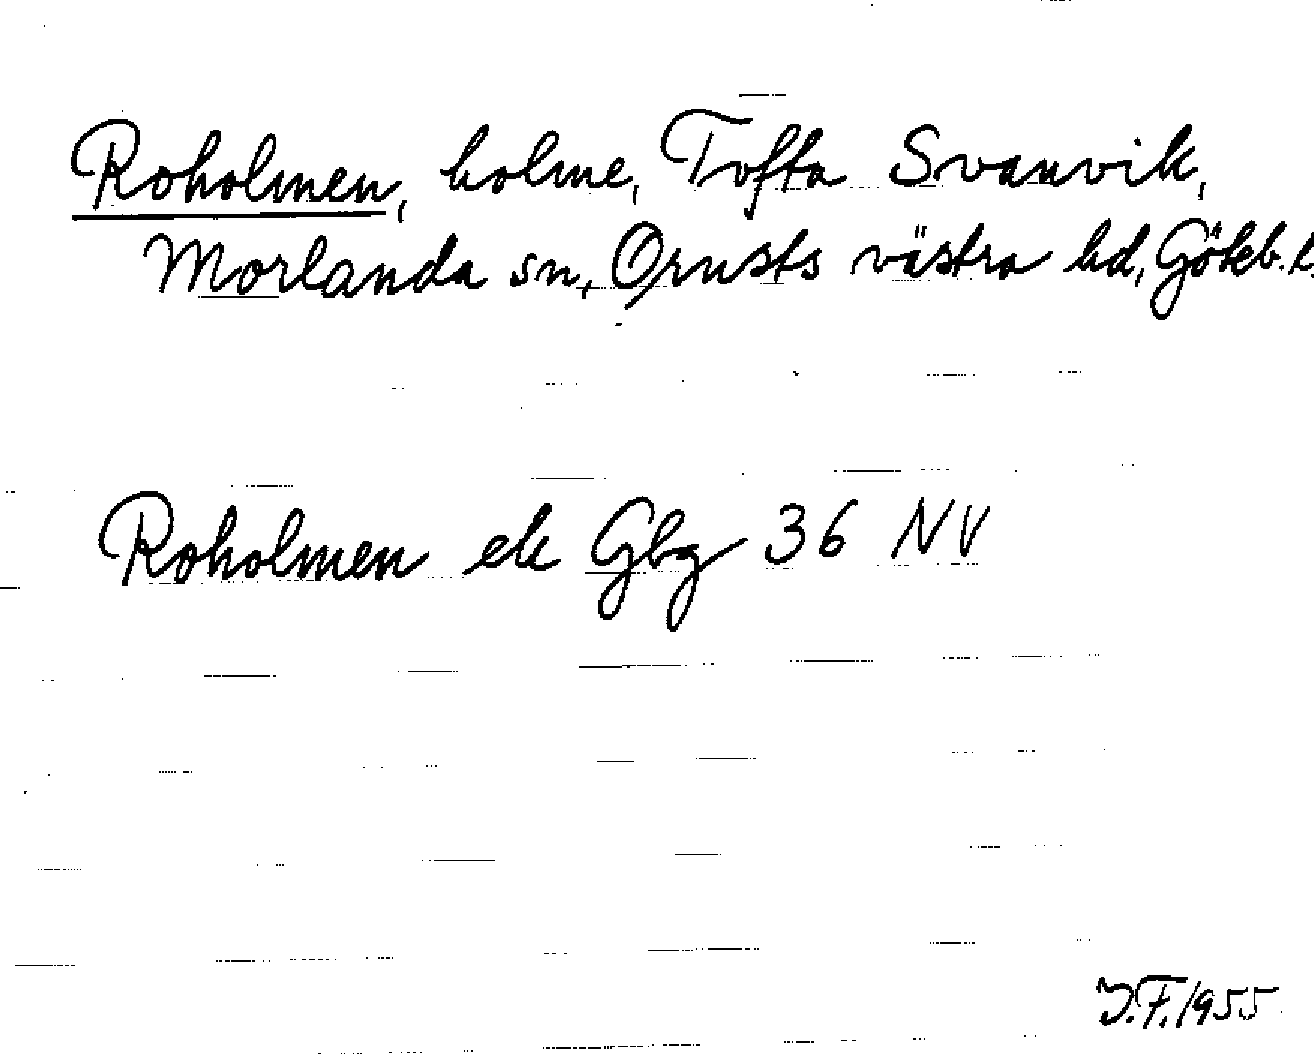 Roholmen, holme, Tofta Svanvik,
Morlanda sn, Orusts västra hd, Göteb. l
Roholmen ek Gbg 36 NV
I.F. 1955